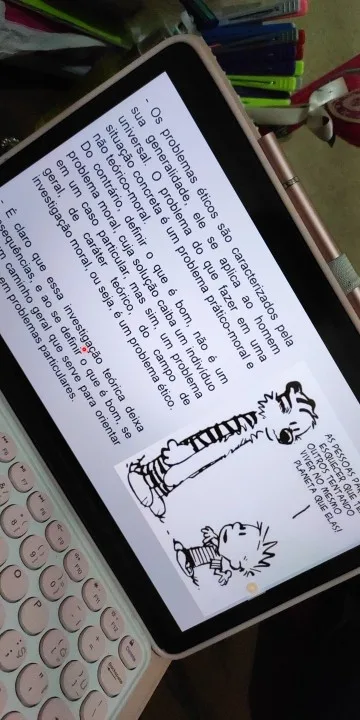 - Os problemas éticos são caracterizados pela
sua generalidade, ele se aplica ao homem
universal. O problema do que fazer em uma
situação concreta é um problema prático-moral e
não teórico-moral
Do contrário, definir o que é bom, não é um
problema moral, cuja solução caiba um indivíduo
em um caso particular, mas sim, um problema
geral, de caráter teórico, do campo de
investigação moral, ou seja, é um problema ético.
- É claro que essa investigação teórica deixa
sequências, e ao se definir o que é bom, se
caminho geral que serve para orientar
problemas particulares.
AS PESSOAS
ESQUECER QUE
OUTROS TENTANDO
VIVER NO MESMO
PLANETA QUE ELAS!